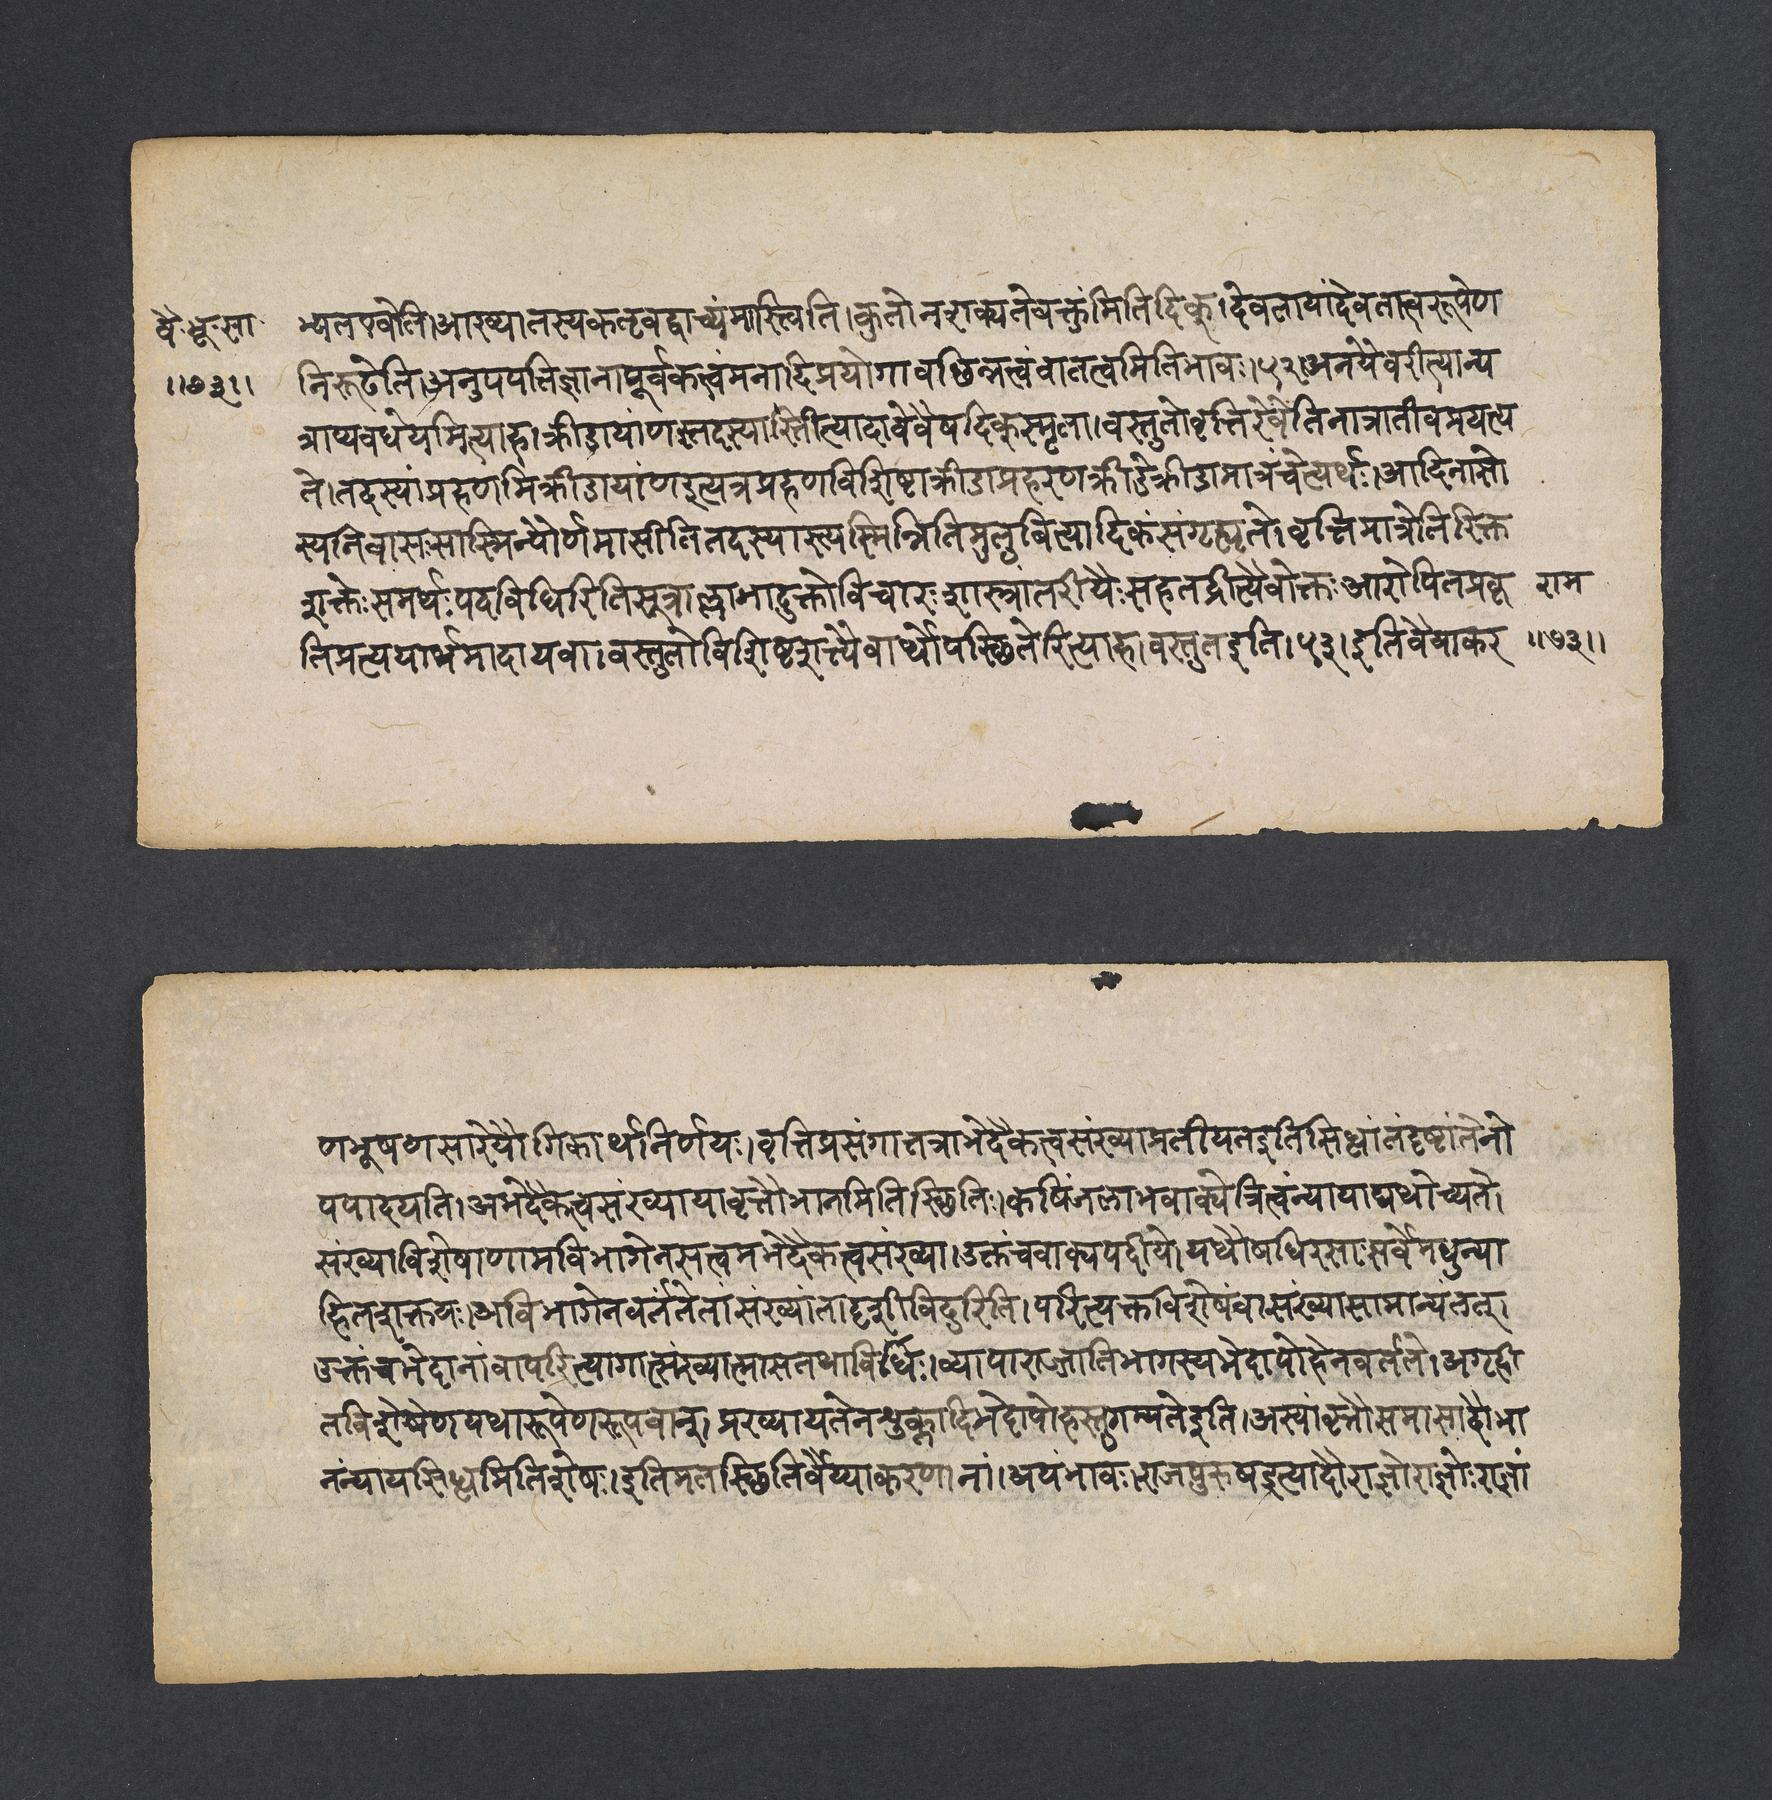 वै॰भू॰सा॰
॥७३॥
भ्यत एवेति।आख्यातस्यकतृवद्वाच्यंमास्त्विति।कुतोनशक्यतेवक्तुंमितिदिक्।देवतायांदेवतात्वरूपेण
निरूढेति।अनुपपत्तिज्ञानापूर्वकत्वंमनादिप्रयोगावछिन्नत्वंवातत्वमितिभावः।५२।अनयैवरीत्यान्य
त्राप्यवधेयमित्याह।क्रीडायांणस्तदस्यास्तीत्यादावेवैषदिक्स्मृता।वस्तुतोवृत्तिरेवेतिनात्रातीवप्रयत्य
ते।तदस्यांप्रहणमिक्रीडायांणइत्यत्रप्रहणविशिष्टाक्रीडाप्रहरणक्रीडेक्रीडामात्रंचेत्यर्थः।आदिनासो
स्यनिवासःसास्मिन्पौर्णमासीतितदस्यास्त्यस्मिन्नितिमुतुबित्यादिकंसंगृह्यते।वृत्तिमात्रेतिरिक्त
शक्तेःसमर्थःपदविधिरितिसूत्राल्लाभादुक्तोविचारःशास्त्रांतरीयैःसहतद्रीत्यैवोक्तःआरोपितप्रकृ
तिप्रत्ययार्थमादायवा।वस्तुतोविशिष्टशक्त्यैवार्थोपस्थितेरित्याह।वस्तुतइति।५३।इतिवैयाकर
राम
॥७३॥
णभूषणसारेयौगिकार्थनिर्णयः।वृत्तिप्रसंगात्तत्राभेदैकत्वसंख्याप्रतीयतइतिसिद्धांतंदृष्टांतेनो
पपादयति।अभेदैकत्वसंख्यायावृत्तौभानमितिस्थितिः।कपिंजलाभवाक्येत्रित्वंन्यायाद्यथोच्यते।
संख्याविशेषाणामविभागेनसत्वमभेदैकत्वसंख्या।उक्तंचवाक्यपदीये।यथौषधिरसाःसर्वेमधुन्या
हितशक्तयः।अविभागेनवर्त्ततेतांसंख्यांतादृशीविदुरिति।परित्यक्तविशेषंवासंख्यासामान्यंतत्।
उक्तंचभेदानांवापरित्यागात्संख्यात्मासतथाविधिः।व्यापाराज्जातिभागस्यभेदापोहेनवर्त्तते।अगृही
तविशेषेणयथारूपेणरूपवान्।प्रख्यायतेनशुक्लादिभेदापोहस्तुगम्यतेइति।अस्यावृत्तौसमासादौभा
नंन्यायसिद्धमितिशेषः।इतिमतस्थितिर्वैय्याकरणानां।अयंभावः।राजपुरुषइत्यादौराज्ञोराज्ञोःराज्ञां